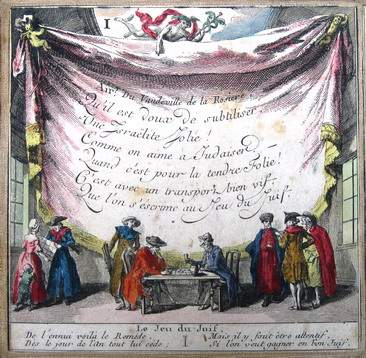 1
Air: Du Vaudeville de la Rosiere.
Qu'il est doux de subtiliser
Une Israëlite Jolie!
Comme on aime a Judaiser
Quand c'est pour la tendre Folie!
C'est avec un transport bien vif
Que l'on s'éscrime au Jeu du Juif.
Le Jeu du Juif.
De l'ennui voila le Remède.
Dès le jour de l'an tout lui cède;
1
Mais il y faut être attentif
Si l'on veut gagner en bon Juif.